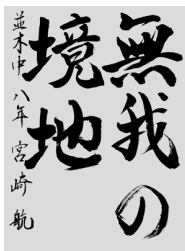 無我の
境地
並木中 八年 宮崎 航